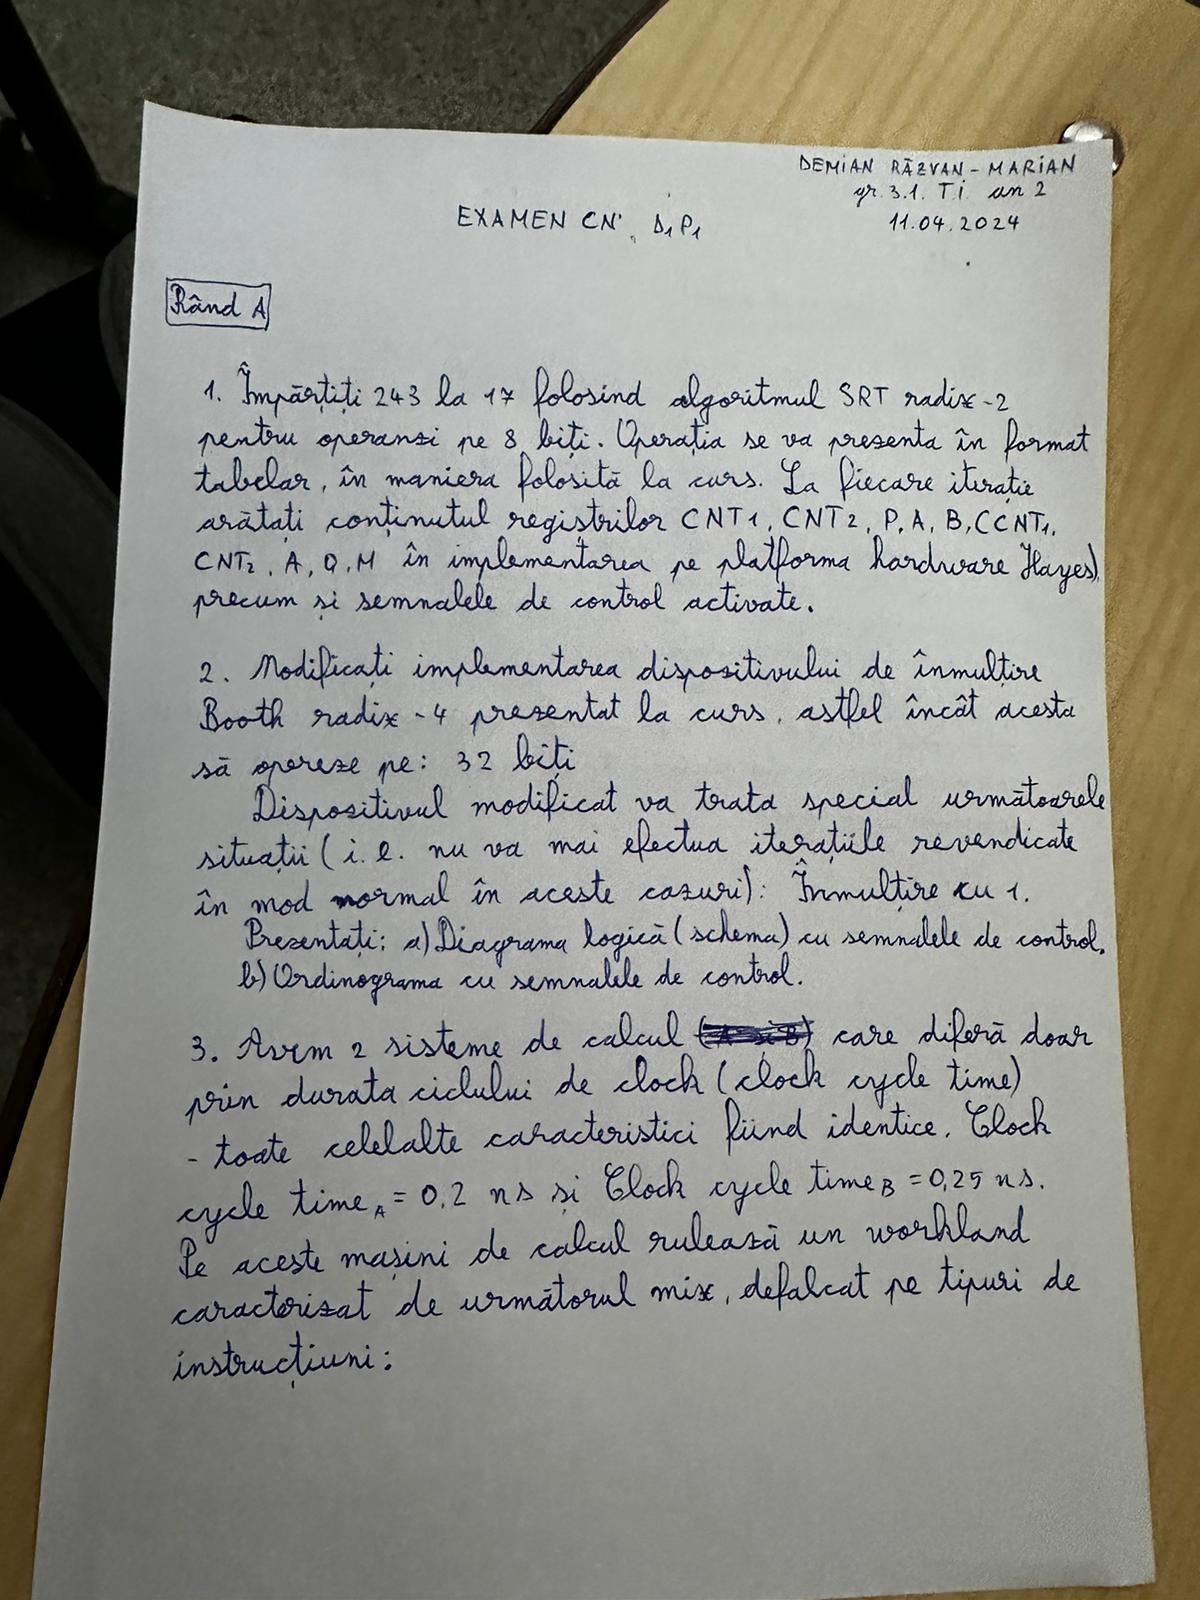 DEMIAN RĂZVAN - MARIAN
gr. 3.1. T.I. an 2
11.04.2024
EXAMEN CN, D₁P₁
Rând A
1. Împărțiți 243 la 17 folosind algoritmul SRT radix-2
pentru operanzi pe 8 biți. Operația se va prezenta în format
tabelar, în maniera folosită la curs. La fiecare iterație
arătați conținutul regiștrilor CNT1, CNT2, P, A, B, (CNT1,
CNT2, A, Q, M în implementarea pe platforma hardware Hayes)
precum și semnalele de control activate.
2. Modificați implementarea dispozitivului de înmulțire
Booth radix-4 prezentat la curs, astfel încât acesta
să opereze pe: 32 biți
Dispozitivul modificat va trata special următoarele
situații (i.e. nu va mai efectua iterațiile revendicate
în mod normal în aceste cazuri): Înmulțire cu 1.
Prezentați: a) Diagrama logică (schema) cu semnalele de control.
b) Ordinograma cu semnalele de control.
3. Avem 2 sisteme de calcul care diferă doar
prin durata ciclului de clock (clock cycle time)
- toate celelalte caracteristici fiind identice. Clock
cycle time A = 0,2 ns și Clock cycle time B = 0,25 ns.
Pe aceste mașini de calcul rulează un workland
caracterizat de următorul mix, defalcat pe tipuri de
instrucțiuni: